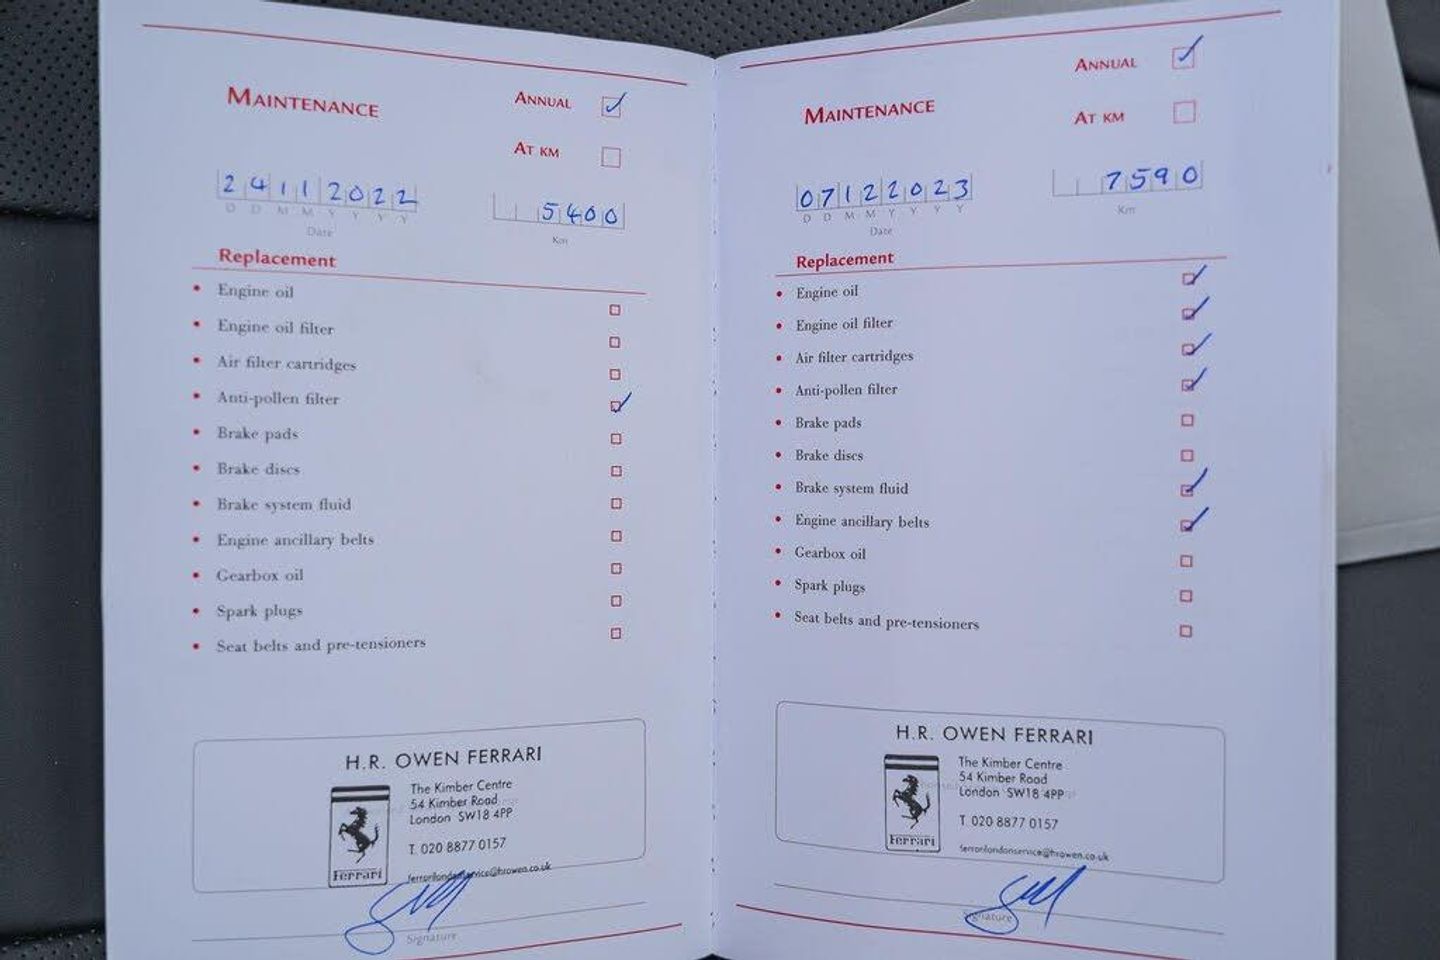 MAINTENANCE
ANNUAL ✓
AT KM
24112022
D D M M Y Y Y Y
Date
5400
Km
Replacement
• Engine oil
• Engine oil filter
• Air filter cartridges
• Anti-pollen filter ✓
• Brake pads
• Brake discs
• Brake system fluid
• Engine ancillary belts
• Gearbox oil
• Spark plugs
• Seat belts and pre-tensioners
H.R. OWEN FERRARI
The Kimber Centre
54 Kimber Road
London SW18 4PP
T. 020 8877 0157
ferrarilondonservice@hrowen.co.uk
Ferrari
Signature
MAINTENANCE
ANNUAL ✓
AT KM
07122023
D D M M Y Y Y Y
Date
7590
Km
Replacement
• Engine oil ✓
• Engine oil filter ✓
• Air filter cartridges ✓
• Anti-pollen filter ✓
• Brake pads
• Brake discs
• Brake system fluid ✓
• Engine ancillary belts ✓
• Gearbox oil
• Spark plugs
• Seat belts and pre-tensioners
H.R. OWEN FERRARI
The Kimber Centre
54 Kimber Road
London SW18 4PP
T. 020 8877 0157
ferrarilondonservice@hrowen.co.uk
Ferrari
Signature